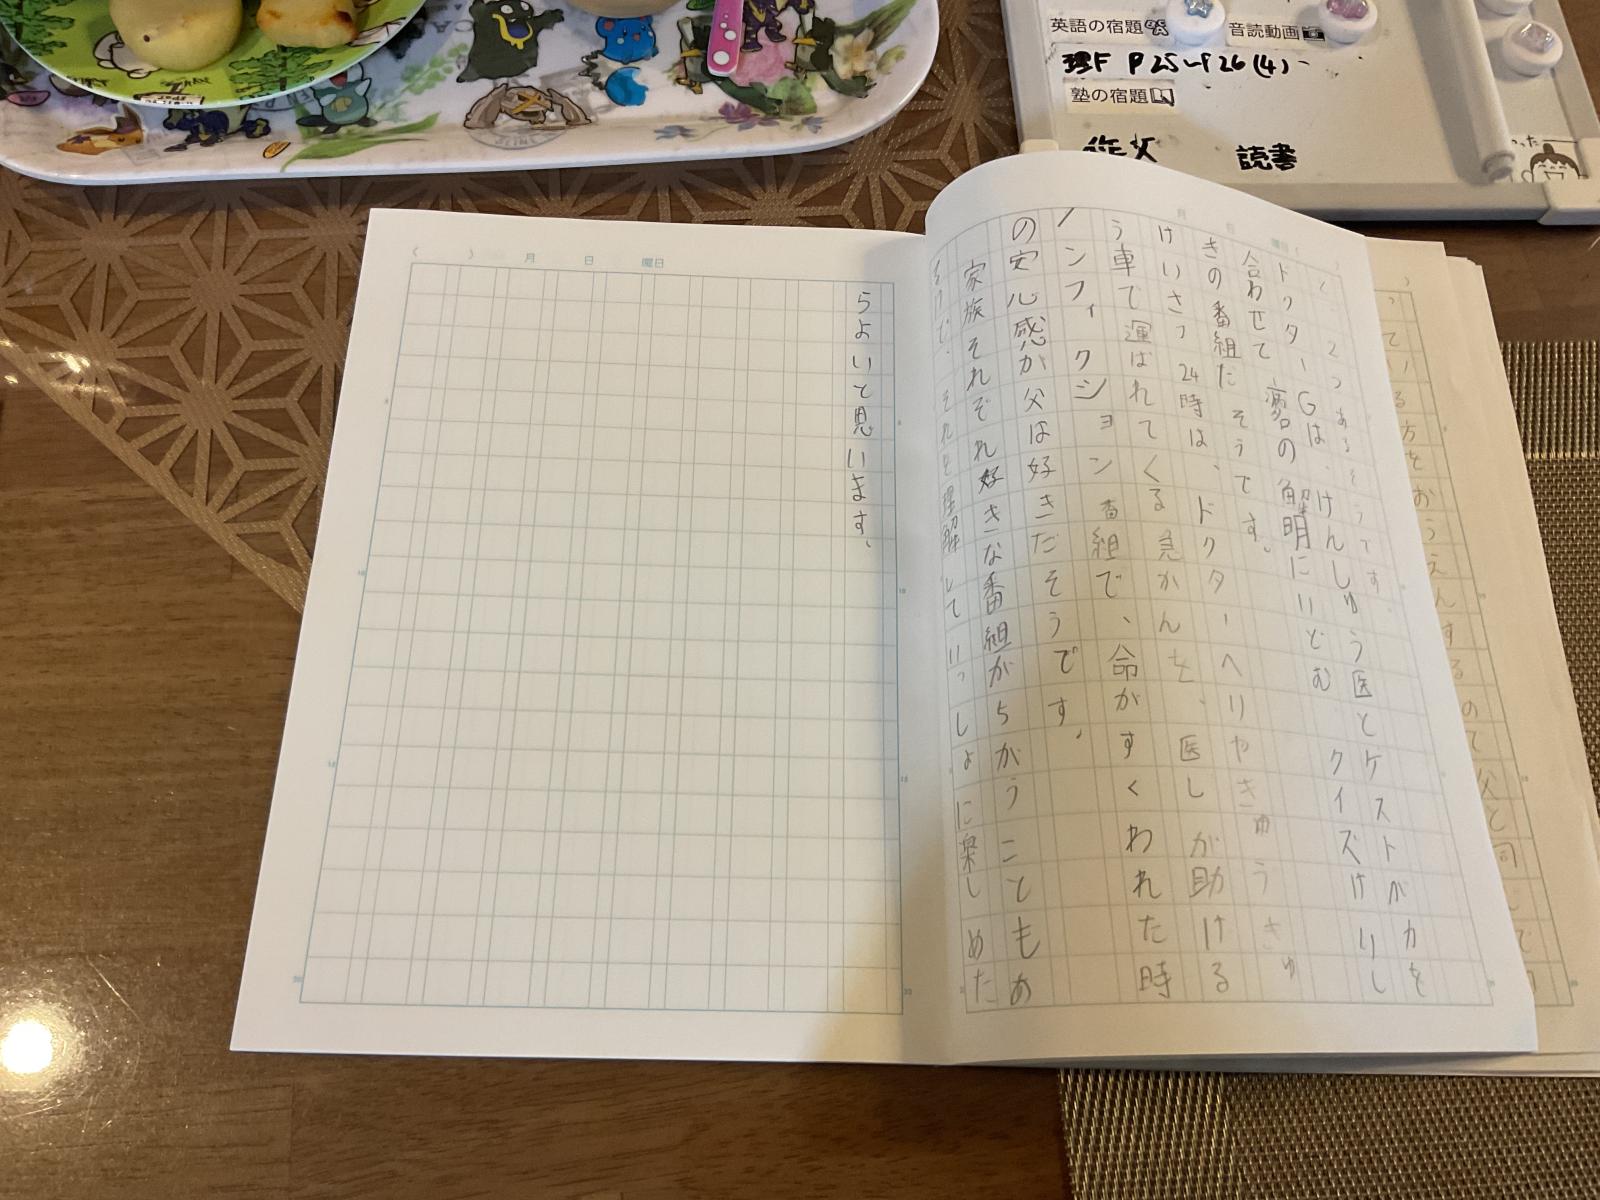 英語の宿題
音読動画
理F P25〜P26(4)
塾の宿題
作文 読書
2つあるそうです。
ドクターGは、けんしゅう医とケストが力を
合わせて病名の解明にいどむクイズけいし
きの番組だそうです。
けいさつ24時は、ドクターヘリやきゅうきゅ
う車で運ばれてくる急かんを、医しが助ける
ノンフィクション番組で、命がすくわれた時
の安心感が父は好きだそうです。
家族それぞれ好きな番組がちがうこともあ
るけど、それを理解していっしょに楽しめた
らよいと思います。
月 日 曜日
月 日 曜日
ている方をおうえんするので父と同じで